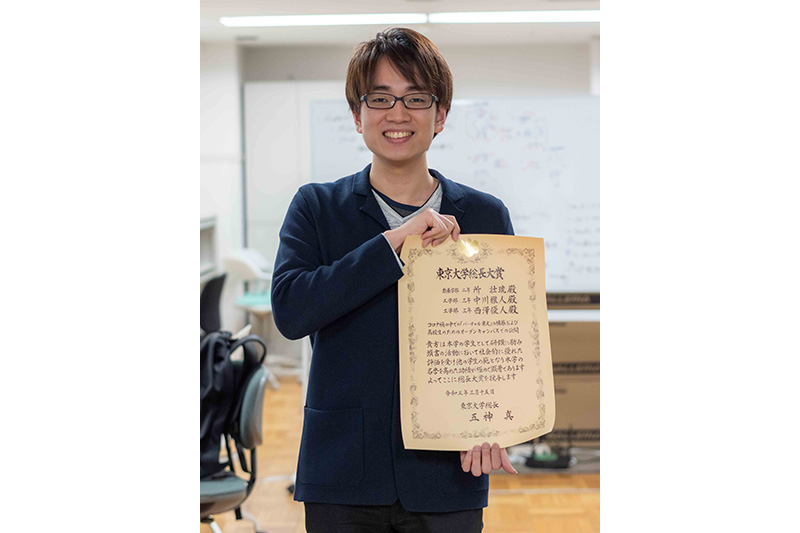 東京大学総長大賞
教養学部 二年 所 壮琉殿
工学部 三年 中川雅人殿
工学部 三年 西澤優人殿
コロナ禍の中での「バーチャル東大」の構築および
高校生のためのオープンキャンパスでの公開
貴方は本学の学生として研鑽に励み
頭書の活動において社会的に優れた
評価を受け他の学生の範となり本学の
名誉を高めた功績が極めて顕著であります
よってここに総長大賞を授与します
令和三年三月十五日
東京大学総長
五神 真